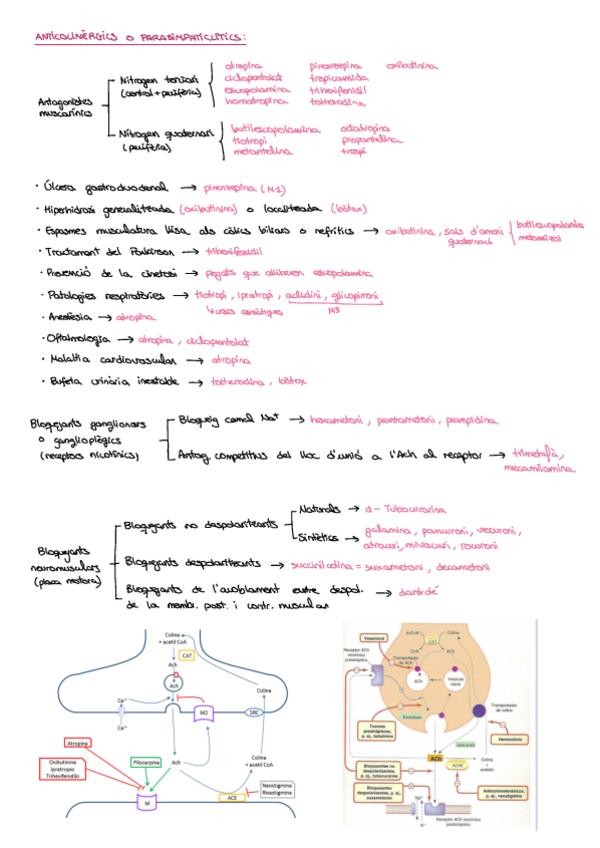 ANTICOLINÈRGICS O PARASIMPATICLÍTICS:
atropina pirenzepina oxibutinina
Nitrogen terciari ciclopentolat tropicamida
(central + perifèria) escopolamina trihexifenidil
homatropina tolterodina
Antagonistes
muscarínics
Nitrogen quaternari butilescopolamina
(perifèria) tiotropi propantelina
metantelina trospi
· Úlcera gastroduodenal → pirenzepina (M1)
· Hiperhidrosi generalitzada (oxibutinina) o localitzada (bòtox)
· Espasmes musculatura llisa als còlics biliars o nefrítics → oxibutinina, sals d'amoni quaternari butilescopolamina
metamizol
· Tractament del Parkinson → trihexifenidil
· Prevenció de la cinetosi → pegats que alliberen escopolamina
· Patologies respiratòries → tiotropi, ipratropi, aclidini, glicopirroni
M3
· Anestèsia → atropina
· Oftalmologia → atropina, ciclopentolat
· Malaltia cardiovascular → atropina
· Bufeta urinària inestable → tolterodina, bòtox
Bloquejants ganglionars
o ganglioplègics
(receptors nicotínics)
Bloqueig canal Na+ → hexametoni, pentametoni, pempidina
Antag. competitius del lloc d'unió a l'Ach al receptor → trimetafà,
mecamilamina
Bloquejants
neuromusculars
(placa motora)
Bloquejants no despolaritzants
Naturals → d-Tubocurarina
Sintètics → galamina, pancuroni, vecuroni,
atracuri, mivacuri, rocuroni
Bloquejants despolaritzants → succinilcolina = suxametoni, decametoni
Bloquejants de l'acoblament entre despol. → dantrolè
de la memb. post. i contr. muscular
Colina
+ acetil CoA
CAT
Ach
Ach
Ca²⁺
Ca²⁺
M2
SRC
Colina
Atropina
Oxibutinina
Ipratropio
Trihexifenidilo
Pilocarpina
Ach
Colina
+ acetil CoA
ACE
Neostigmina
Rivastigmina
M
Vesamicol
AcCoA
Colina
CAT
CoA
ACh
Receptor ACh
nicotínico
presináptico
Transportador
de ACh
ACh
Vesícula
vacía
Transportador
de colina
Toxinas
presinápticas,
p. ej., botulínica
Exocitosis
Hemicolinio
ACh
AChE
Colina
+
acetato
Bloqueantes no
despolarizantes,
p. ej., tubocurarina
Bloqueantes
despolarizantes, p. ej.,
suxametonio
Anticolinesterásicos,
p. ej., neostigmina
Na⁺
K⁺
Receptor ACh nicotínico
postsináptico